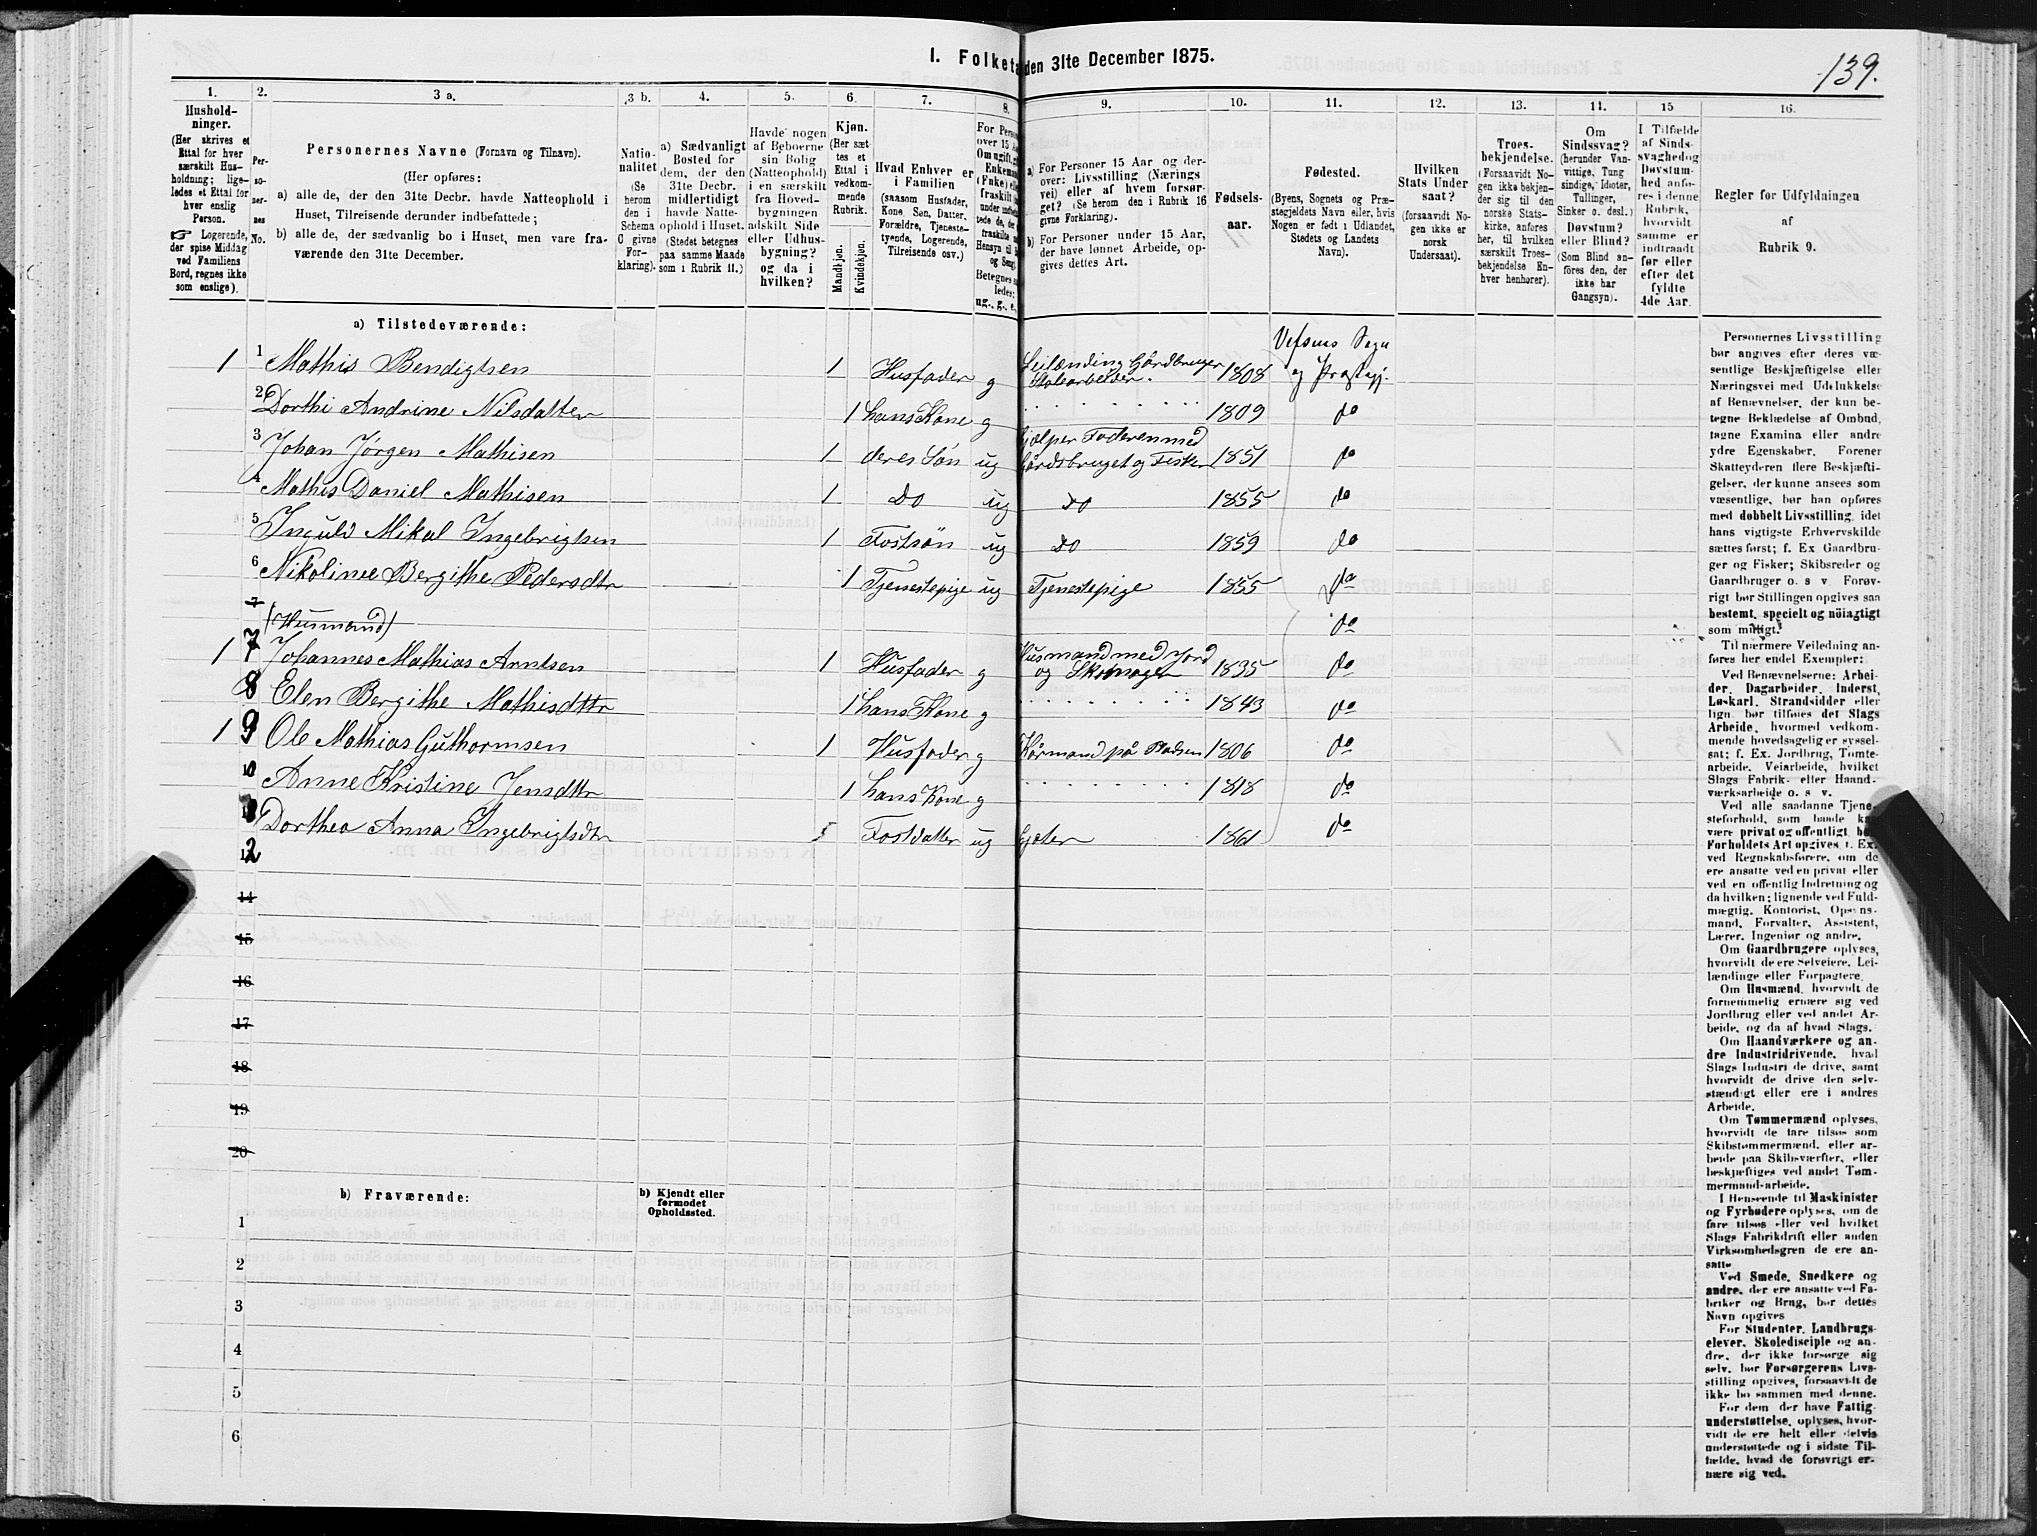 139.
I. Folketæ den 31te December 1875.
1. 2. 3 a. 3 b. 4. 5. 6. 7. 8. 9. 10. 11. 12. 13. 14. 15 16.
Hushold-
ninger.
(Her skrives et
Ettal for hver
særskilt Hus-
holdning; lige-
ledes et Ettal for
hver enslig
Person.
☞ Logerende,
der spise Middag
ved Familiens
Bord, regnes ikke
som enslige).
Per-
so-
ner-
nes
No.
Personernes Navne (Fornavn og Tilnavn).
(Her opføres:
a) alle de, der den 31te Decbr. havde Natteophold i
Huset, Tilreisende derunder indbefattede;
b) alle de, der sædvanlig bo i Huset, men vare fra-
værende den 31te December.
Natio-
nalitet
(Se
herom
den i
Schema
C givne
For-
klaring).
a) Sædvanligt
Bosted for
dem, der den
31te Decbr.
midlertidigt
havde Natte-
ophold i Huset.
(Stedet betegnes
paa samme Maade
som i Rubrik 11.)
Havde nogen
af Beboerne
sin Bolig
(Natteophold)
i en særskilt
fra Hoved-
bygningen
adskilt Side
eller Udhus-
bygning?
og da i
hvilken?
Kjøn.
(Her sæt-
tes et
Ettal i
vedkom-
mende
Rubrik.
Mandkjøn.
Kvindekjøn.
Hvad Enhver er
i Familien
(saasom Husfader,
Kone, Søn, Datter,
Forældre, Tjeneste-
tyende, Logerende,
Tilreisende osv.)
a) For Personer 15 Aar og der-
over: Livsstilling (Nærings
vei) eller af hvem forsør-
get? (Se herom den i Rubrik 16
givne Forklaring).
b) For Personer under 15 Aar,
der have lønnet Arbeide, op-
gives dettes Art.
Fødsels-
aar.
Fødested.
(Byens, Sognets og Præ-
stegjeldets Navn eller, hvis
Nogen er født i Udlandet,
Stedets og Landets
Navn).
Hvilken
Stats Under
saat?
(forsaavidt No-
gen ikke er
norsk
Undersaat).
Troes-
bekjendelse.
(Forsaavidt No-
gen ikke bekjen-
der sig til den
norske Stats-
kirken, anføres
her, til hvilken
særskilt Troes-
bekjendelse En-
hver henhører).
Om
Sindssvag?
(herunder Van-
vittige, Tung
sindige, Idioter,
Tullinger,
Sinker o. desl.)
Døvstum?
eller Blind?
(Som Blind an-
føres den, der
ikke har
Gangsyn).
I Tilfælde
af Sinds-
svaghed og
Døvstum-
hed anfø-
res i denne
Rubrik,
hvorvidt
samme er
indtraadt
før eller
efter det
fyldte
4de Aar.
Regler for Udfyldningen
af
Rubrik 9.
a) Tilstedeværende:
1 1 Mathis Bendigtsen 1 Husfader g Leilænding Gårdbruger Stolearbeider. 1808 Vefsens Sogn og Præstegj.
2 Dorthi Andrine Nilsdatter 1 hans Kone g 1809 do
3 Johan Jørgen Mathisen 1 deres Søn ug Hjælper Faderen med Gårdsbruget og Fisker 1851 do
4 Mathis Daniel Mathisen 1 Do ug Do 1855 do
5 Inguld Mikal Ingebrigtsen 1 Fostsøn ug Do 1859 do
6 Nikolinee Bergithe Pedersdtr 1 Tjenestepige ug Tjenestepige 1855 do
7 (Husmand) do
1 7 Johannes Mathias Arntsen 1 Husfader g Husmand med Jord og Skomager 1835 do
8 Elen Bergithe Mathisdttr 1 hans Kone g 1843 do
1 9 Ole Mathias Guthormsen 1 Husfader g Kårmand på Pladsen 1806 do 1
10 Anne Kristine Jensdttr 1 hans Kone g 1818 do
Dorthea Anna Ingebrigtsdtr Fostdatter ug Gjeter 1861 do
12
14
15
16
17
18
19
20
b) Fraværende:
b) Kjendt eller
formodet
Opholdssted.
1
2
3
4
5
6
Personernes Livsstilling
bør angives efter deres væ-
sentlige Beskjæftigelse eller
Næringsvei med Udelukkelse
af Benævnelser, der kun be-
tegne Beklædelse af Ombud,
tagne Examina eller andre
ydre Egenskaber. Forener
Skatteyderen flere Beskjæfti-
gelser, der kunne ansees som
væsentlige, bør han opføres
med dobbelt Livsstilling, idet
hans vigtigste Erhvervskilde
sættes først; f. Ex Gaardbru-
ger og Fisker; Skibsreder og
Gaardbruger o. s v. Forøv-
rigt bør Stillingen opgives saa
bestemt, specielt og nöiagtigt
som muligt.
Til nærmere Veiledning an-
føres her endel Exempler:
Ved Benævnelserne: Arbei-
der, Dagarbeider, Inderst,
Løskarl, Strandsidder eller
lign. bør tilføies det Slags
Arbeide, hvormed vedkom-
mende hovedsagelig er syssel-
sat; f. Ex. Jordbrug, Tomte-
arbeide, Veiarbeide, hvilket
Slags Fabrik- eller Haand-
værksarbeide o. s v.
Ved alle saadanne Tjene-
steforhold, som baade kan
være privat og offentligt, bør
Forholdets Art opgives, f. Ex.
ved Regnskabsførere, om de
ere ansatte ved en privat eller
ved en offentlig Indretning og
da hvilken; lignende ved Fuld-
mægtig, Kontorist, Opsyns-
mand, Forvalter, Assistent,
Lærer, Ingeniør og andre.
Om Gaardbrugere oplyses,
hvorvidt de ere Selveiere, Lei-
lændinge eller Forpagtere.
Om Husmænd, hvorvidt de
fornemmelig ernære sig ved
Jordbrug eller ved andet Ar-
beide, og da af hvad Slags.
Om Haandværkere og an-
dre Industridrivende, hvad
Slags Industri de drive, samt
hvorvidt de drive den selv-
stændigt eller ere i andres
Arbeide.
Om Tømmermænd oplyses,
hvorvidt de fare tilsøs som
Skibstømmermænd, eller ar-
beide paa Skibsværfter, eller
beskjæftiges ved andet Tøm-
mermand-arbeide.
I Henseende til Maskinister
og Fyrbødere oplyses, om de
fare tilsøs eller ved hvilket
Slags Fabrikdrift eller anden
Virksomhedsgren de ere an-
satte.
Ved Smede, Snedkere og
andre, der ere ansatte ved Fa-
briker og Brug, bør dettes
Navn opgives
For Studenter, Landbrugs-
elever, Skoledisciple og an-
dre, der ikke forsørge sig
selv, bør Forsørgerens Livs-
stilling opgives, forsaavidt de
ikke bo sammen med denne.
For dem der have Fattig-
understøttelse, oplyses, hvor-
vidt de ere helt eller delvis
understøttede og i sidste Til-
fælde, hvad de forøvrigt er-
nære sig ved.